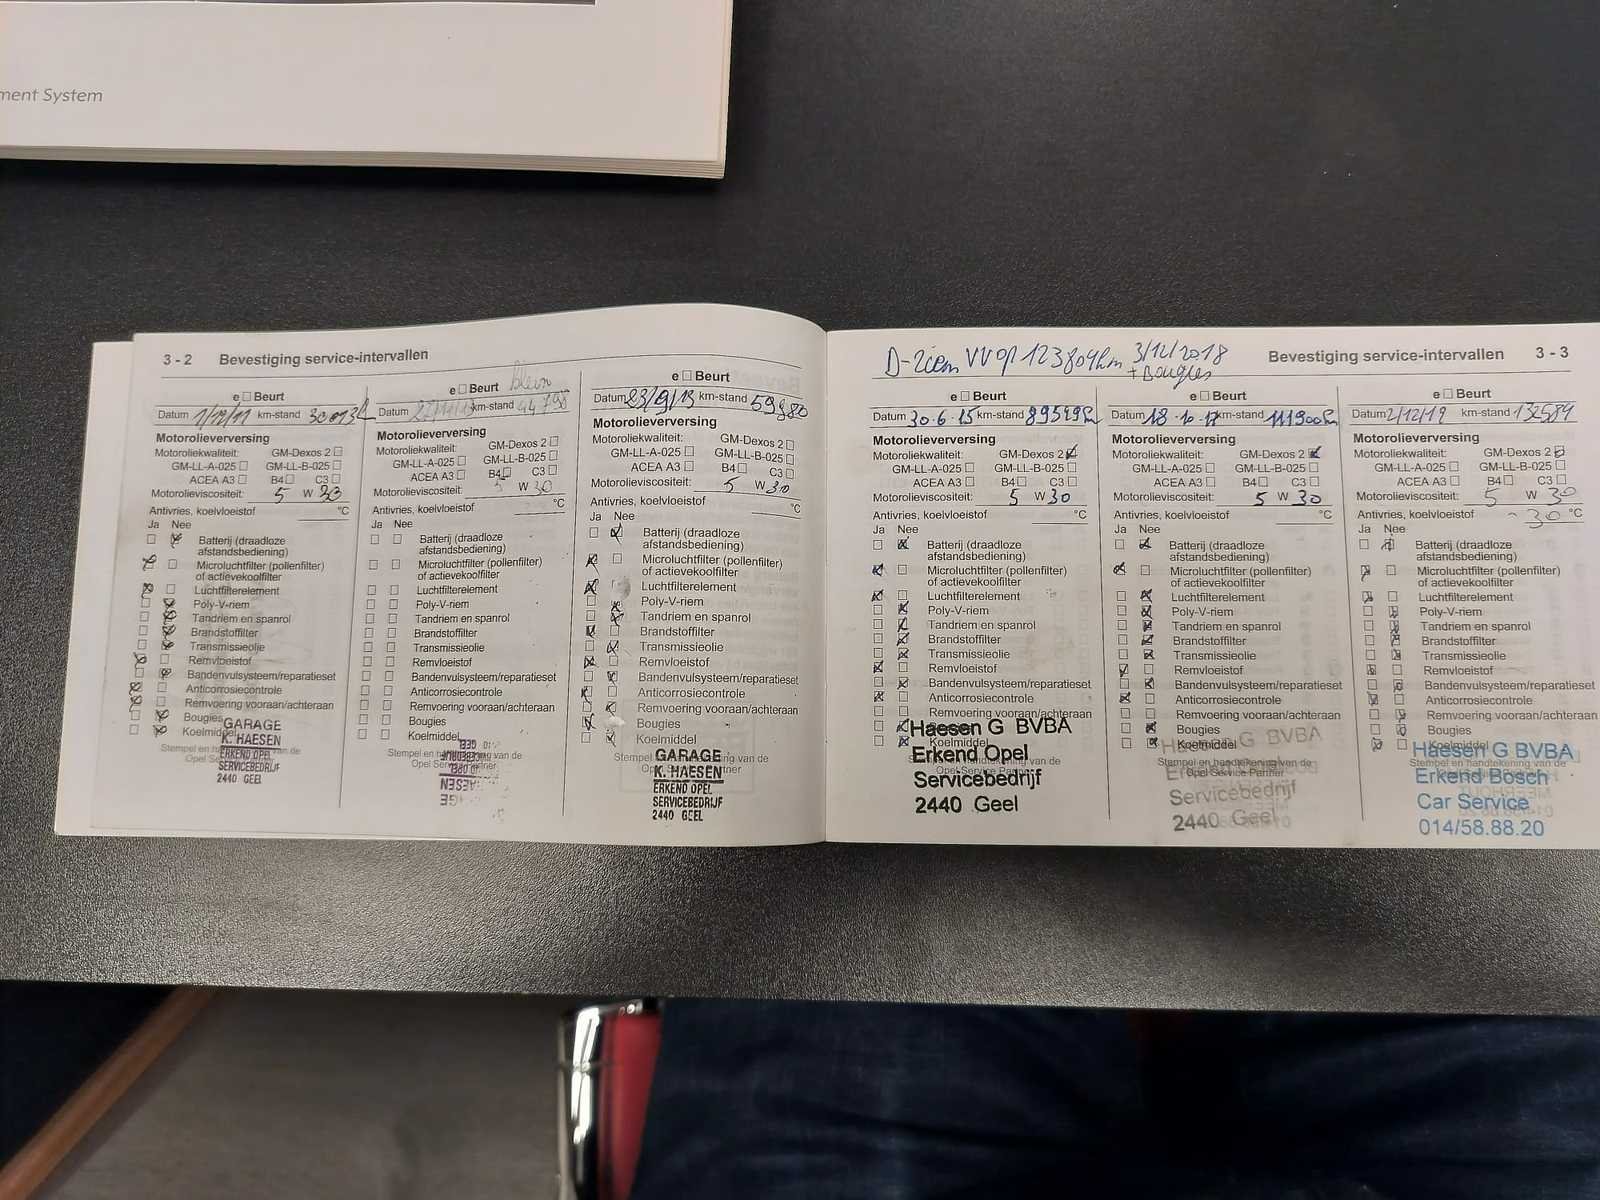 ment System
3 - 2 Bevestiging service-intervallen
e □ Beurt
Datum 1/12/11 km-stand
Motorolieverversing
Motoroliekwaliteit: GM-Dexos 2 □
GM-LL-A-025 □ GM-LL-B-025 □
ACEA A3 □ B4 □ C3 □
Motorolieviscositeit: 5 W 30
Antivries, koelvloeistof °C
Ja Nee
Batterij (draadloze
afstandsbediening)
Microluchtfilter (pollenfilter)
of actievekoolfilter
Luchtfilterelement
Poly-V-riem
Tandriem en spanrol
Brandstoffilter
Transmissieolie
Remvloeistof
Bandenvulsysteem/reparatieset
Anticorrosiecontrole
Remvoering vooraan/achteraan
Bougies
Koelmiddel
Stempel en handtekening van de
GARAGE
K. HAESEN
ERKEND OPEL
SERVICEBEDRIJF
2440 GEEL
e □ Beurt klein
Datum km-stand 44798
Motorolieverversing
Motoroliekwaliteit: GM-Dexos 2 □
GM-LL-A-025 □ GM-LL-B-025 □
ACEA A3 □ B4 □ C3 □
Motorolieviscositeit: 5 W 30
Antivries, koelvloeistof °C
Ja Nee
Batterij (draadloze
afstandsbediening)
Microluchtfilter (pollenfilter)
of actievekoolfilter
Luchtfilterelement
Poly-V-riem
Tandriem en spanrol
Brandstoffilter
Transmissieolie
Remvloeistof
Bandenvulsysteem/reparatieset
Anticorrosiecontrole
Remvoering vooraan/achteraan
Bougies
Koelmiddel
Stempel en handtekening van de
Opel Service Partner
e □ Beurt
Datum 23/9/13 km-stand 59980
Motorolieverversing
Motoroliekwaliteit: GM-Dexos 2 □
GM-LL-A-025 □ GM-LL-B-025 □
ACEA A3 □ B4 □ C3 □
Motorolieviscositeit: 5 W 30
Antivries, koelvloeistof °C
Ja Nee
Batterij (draadloze
afstandsbediening)
Microluchtfilter (pollenfilter)
of actievekoolfilter
Luchtfilterelement
Poly-V-riem
Tandriem en spanrol
Brandstoffilter
Transmissieolie
Remvloeistof
Bandenvulsysteem/reparatieset
Anticorrosiecontrole
Remvoering vooraan/achteraan
Bougies
Koelmiddel
GARAGE
K. HAESEN
ERKEND OPEL
SERVICEBEDRIJF
2440 GEEL
D-riem VV op 123804km 3/12/2018
+ Bougies
Bevestiging service-intervallen 3 - 3
e □ Beurt
Datum 30-6-15 km-stand 89549km
Motorolieverversing
Motoroliekwaliteit: GM-Dexos 2
GM-LL-A-025 □ GM-LL-B-025 □
ACEA A3 □ B4 □ C3 □
Motorolieviscositeit: 5 W 30
Antivries, koelvloeistof °C
Ja Nee
Batterij (draadloze
afstandsbediening)
Microluchtfilter (pollenfilter)
of actievekoolfilter
Luchtfilterelement
Poly-V-riem
Tandriem en spanrol
Brandstoffilter
Transmissieolie
Remvloeistof
Bandenvulsysteem/reparatieset
Anticorrosiecontrole
Remvoering vooraan/achteraan
Koelmiddel
Haesen G BVBA
Erkend Opel
Servicebedrijf
2440 Geel
e □ Beurt
Datum 18-10-17 km-stand 111900km
Motorolieverversing
Motoroliekwaliteit: GM-Dexos 2
GM-LL-A-025 □ GM-LL-B-025 □
ACEA A3 □ B4 □ C3 □
Motorolieviscositeit: 5 W 30
Antivries, koelvloeistof °C
Ja Nee
Batterij (draadloze
afstandsbediening)
Microluchtfilter (pollenfilter)
of actievekoolfilter
Luchtfilterelement
Poly-V-riem
Tandriem en spanrol
Brandstoffilter
Transmissieolie
Remvloeistof
Bandenvulsysteem/reparatieset
Anticorrosiecontrole
Remvoering vooraan/achteraan
Bougies
Koelmiddel
Stempel en handtekening van de
Opel Service Partner
Haesen G BVBA
Servicebedrijf
2440 Geel
e □ Beurt
Datum 2/12/19 km-stand 132589
Motorolieverversing
Motoroliekwaliteit: GM-Dexos 2
GM-LL-A-025 □ GM-LL-B-025 □
ACEA A3 □ B4 □ C3 □
Motorolieviscositeit: 5 W 30
Antivries, koelvloeistof - 30 °C
Ja Nee
Batterij (draadloze
afstandsbediening)
Microluchtfilter (pollenfilter)
of actievekoolfilter
Luchtfilterelement
Poly-V-riem
Tandriem en spanrol
Brandstoffilter
Transmissieolie
Remvloeistof
Bandenvulsysteem/reparatieset
Anticorrosiecontrole
Remvoering vooraan/achteraan
Bougies
Koelmiddel
Stempel en handtekening van de
Haesen G BVBA
Erkend Bosch
Car Service
014/58.88.20